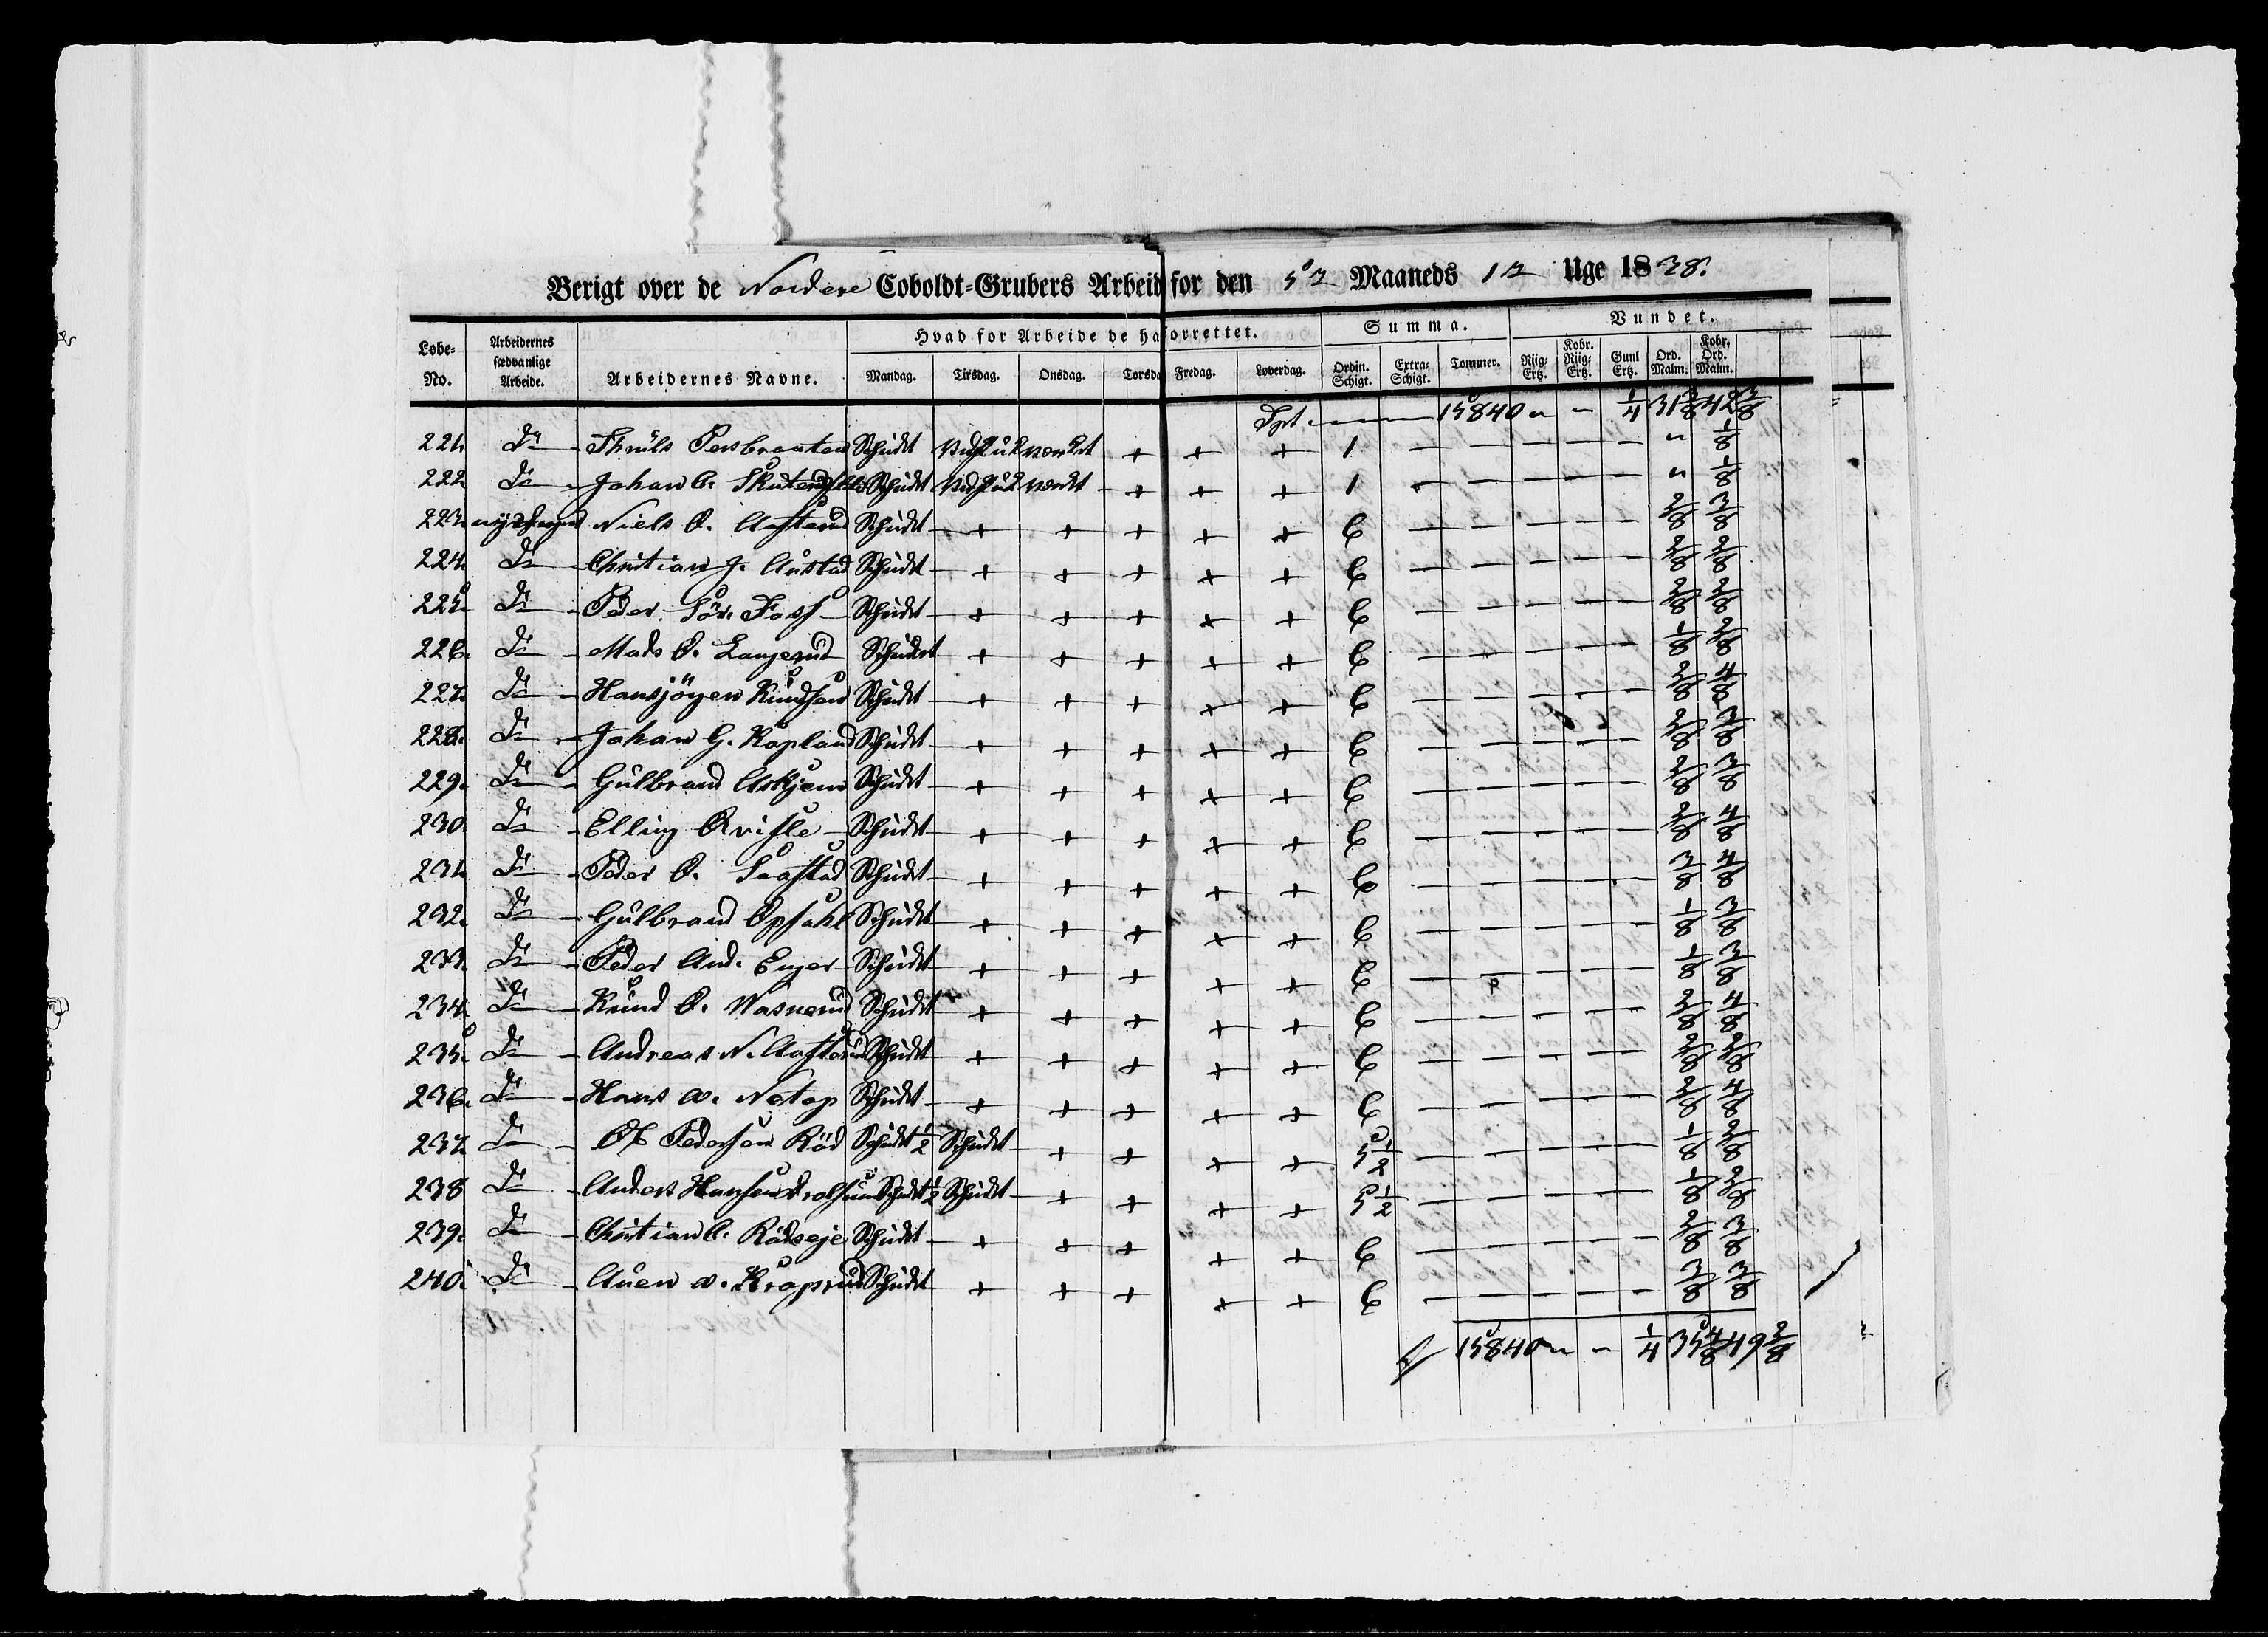 Berigt over de Nordere Coboldt-Grubers Arbeid for den 5te Maaneds 1te Uge 1838.
Lobe-No. Arbeidernes sædvanlige Arbeide. Arbeidernes Navne. Hvad for Arbeide de ha forrettet. Summa. Vundet.
Mandag. Tirsdag. Onsdag. Torsda Fredag. Loverdag. Ordin. Schigt. Extra-Schigt. Tommer. Riig-Ertz. Kobr. Riig-Ertz. Guul Ertz. Ord. Malm. Kobr. Ord. Malm.
Tpt. — 15840 " - 1/4 31 3/8 42 3/8
221. do - Thruls Persbraaten Scheidet + + + 1 — — — — — " 1/8
222. do - Johan C. Scheidet + + + 1 — — — — — " 1/8
223. Niels O. Aasterud Scheidet + + + + + 6 — — — — — 2/8 3/8
224. do - Christian J. Austad Scheidet + + + + + 6 — — — — — 2/8 2/8
225. do - Peder Sör. Foss Scheidet + + + + + 6 — — — — — 2/8 2/8
226. do - Mads O. Langerud Scheidet + + + + + 6 — — — — — 1/8 2/8
227. do - Hansjörgen Knudsen Scheidet + + + + + 6 — — — — — 2/8 4/8
228. do - Johan G. Kopland Scheidet + + + + + 6 — — — — — 2/8 3/8
229. do - Gulbrand Askjem Scheidet + + + + + 6 — — — — — 2/8 3/8
230. do - Elling Qvisle Scheidet + + + + + 6 — — — — — 2/8 4/8
231. do - Peder O. Saastad Scheidet + + + + + 6 — — — — — 3/8 4/8
232. do - Gulbrand Opsahl Scheidet + + + + + 6 — — — — — 1/8 3/8
233. do - Peder And. Enger Scheidet + + + + + 6 — — — — — 1/8 3/8
234. do - Knud O. Wasnerud Scheidet + + + + + 6 — — — — — 2/8 4/8
235. do - Andreas N. Aasterud Scheidet + + + + + 6 — — — — — 2/8 2/8
236. do - Hans A. Scheidet + + + + + 6 — — — — — 2/8 4/8
237. do - Ol Pedersen Röd Scheidet 1/2 Scheidet + + + + 5 1/2 — — — — — 1/8 2/8
238 do - Anders Hansen Scheidet 1/2 Scheidet + + + + 5 1/2 — — — — — 1/8 2/8
239. do - Christian C. Rödseje Scheidet + + + + + 6 — — — — — 2/8 3/8
240. do - Auen A. Kroprud Scheidet + + + + + 6 — — — — — 3/8 3/8
15840 " - 1/4 35 4/8 49 2/8